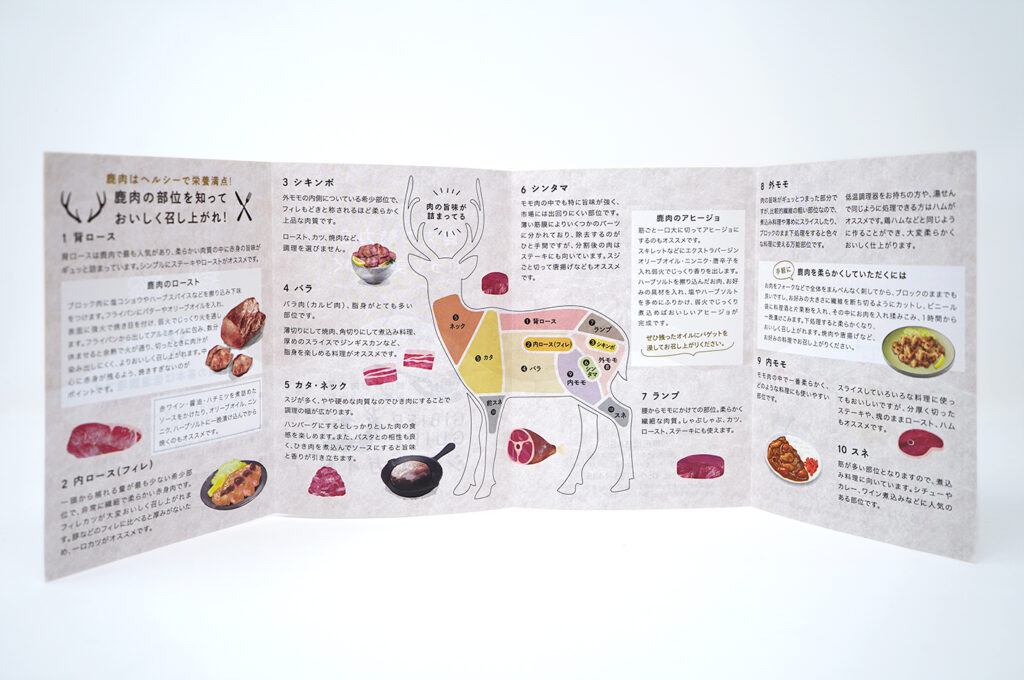 鹿肉はヘルシーで栄養満点!
鹿肉の部位を知って
おいしく召し上がれ!
1 背ロース
背ロースは鹿肉で最も人気があり、柔らかい肉質の中に赤身の旨味が
ギュッと詰まっています。シンプルにステーキやローストがオススメです。
鹿肉のロースト
ブロック肉に塩コショウやハーブスパイスなどを擦り込み下味
をつけます。フライパンにバターやオリーブオイルを入れ、
表面に強火で焼き目を付け、弱火でじっくり火を通し
ます。フライパンから出してアルミホイルに包み、数分
休ませると余熱で火が通り、切ったときに肉汁が
染み出しにくく、よりおいしく召し上がれます。中
心に赤身が残るよう、焼きすぎないのが
ポイントです。
赤ワイン・醤油・ハチミツを煮詰めた
ソースをかけたり、オリーブオイル、ニン
ニク、ハーブソルトに一晩漬け込んでから
焼くのもオススメです。
2 内ロース(フィレ)
一頭から捕れる量が最も少ない希少部
位で、非常に繊細で柔らかい赤身肉です。
フィレカツが大変おいしく召し上がれま
す。豚などのフィレに比べると厚みがないた
め、一口カツがオススメです。
3 シキンボ
外モモの内側についている希少部位で、
フィレもどきと称されるほど柔らかく
上品な肉質です。
ロースト、カツ、焼肉など、
調理を選びません。
4 バラ
バラ肉(カルビ肉)、脂身がとても多い
部位です。
薄切りにして焼肉、角切りにして煮込み料理、
厚めのスライスでジンギスカンなど、
脂身を楽しめる料理がオススメです。
5 カタ・ネック
スジが多く、やや硬めな肉質なのでひき肉にすることで
調理の幅が広がります。
ハンバーグにするとしっかりとした肉の食
感を楽しめます。また、パスタとの相性も良
く、ひき肉を煮込んでソースにすると旨味
と香りが引き立ちます。
肉の旨味が
詰まってる
5
ネック
5 カタ
1 背ロース
2 内ロース(フィレ)
4 バラ
7
ランプ
3 シキンボ
6
シン
タマ
外モモ
8
9
内モモ
前スネ
10 スネ
6 シンタマ
モモ肉の中でも特に旨味が強く、
市場には出回りにくい部位です。
薄い筋膜によりいくつかのパーツ
に分かれており、除去するのが
ひと手間ですが、分割後の肉は
ステーキにも向いています。スジ
ごと切って唐揚げなどもオススメ
です。
鹿肉のアヒージョ
筋ごと一口大に切ってアヒージョに
するのもオススメです。
スキレットなどにエクストラバージン
オリーブオイル・ニンニク・唐辛子を
入れ弱火でじっくり香りを出します。
ハーブソルトを擦り込んだお肉、お好
みの具材を入れ、塩やハーブソルト
を多めにふりかけ、弱火でじっくり
煮込めばおいしいアヒージョが
完成です。
ぜひ残ったオイルにバゲットを
浸してお召し上がりください。
7 ランプ
腰からモモにかけての部位。柔らかく
繊細な肉質。しゃぶしゃぶ、カツ、
ロースト、ステーキにも使えます。
8 外モモ
肉の旨味がギュッとつまった部分で
すが、比較的繊維の粗い部位なので、
煮込み料理や薄めにスライスしたり、
ブロックのまま下処理をすると色々
な料理に使える万能部位です。
低温調理器をお持ちの方や、湯せん
で同じように処理できる方はハムが
オススメです。鶏ハムなどと同じよう
に作ることができ、大変柔らかく
おいしく仕上がります。
手軽に
鹿肉を柔らかくしていただくには
お肉をフォークなどで全体をまんべんなく刺してから、ブロックのままでも
良いですし、お好みの大きさに繊維を断ち切るようにカットし、ビニール
袋に料理酒と片栗粉を入れ、その中にお肉を入れ揉みこみ、1時間から
一晩漬けこみます。下処理すると柔らかくなり、
おいしく召し上がれます。焼肉や唐揚げなど、
お好みの料理でお召し上がりください。
9 内モモ
モモ肉の中で一番柔らかく、
どのような料理にも使いやすい
部位です。
スライスしていろいろな料理に使っ
てもおいしいですが、分厚く切った
ステーキや、塊のままロースト、ハム
もオススメです。
10 スネ
筋が多い部位となりますので、煮込
み料理に向いています。シチューや
カレー、ワイン煮込みなどに人気の
ある部位です。